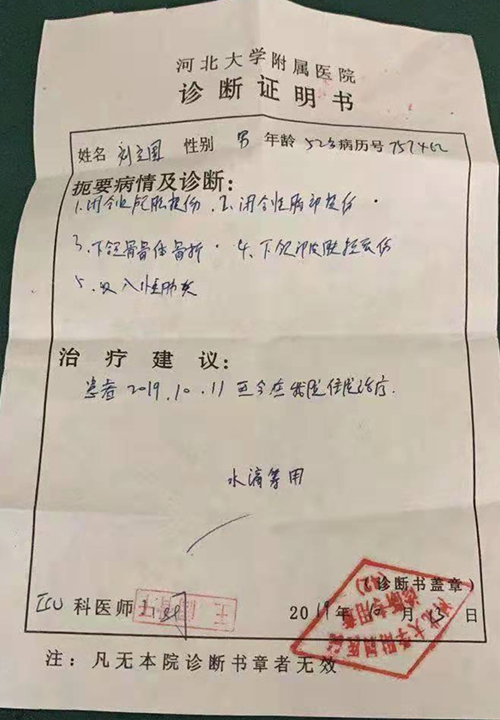 河北大学附属医院
诊断证明书
姓名 刘立国 性别 男 年龄 52岁 病历号 757462
扼要病情及诊断:
1.闭合性颅脑损伤.2.闭合性胸部损伤.
3.下颌骨骨体骨折.4.下颌部皮肤挫裂伤
5.吸入性肺炎
治疗建议:
患者2019.10.11至今在我院住院治疗.
水滴筹用
(诊断书盖章
ICU 科医师
2019年10月13日
河北大学附属医院
诊断专用章
(42)
注:凡无本院诊断书章者无效